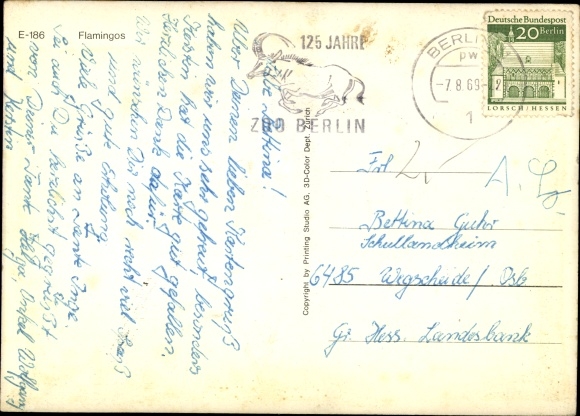 E-186 Flamingos
125 JAHRE
ZOO BERLIN
BERLIN
-7.8.69-
1
Deutsche Bundespost
20 Berlin
LORSCH/HESSEN
Liebe Bettina!
Über Deinen lieben Kartengruß
haben wir uns sehr gefreut, besonders
Karsten hat die Karte gut gefallen.
Herzlichen Dank dafür.
Wir wünschen Dir noch recht viel Spaß
und gute Erholung.
Viele Grüße an Tante Inge.
Sei auch Du herzlichst gegrüßt
von Deiner Tante Helga, Onkel Wolfgang
und Karsten
Copyright by Printing Studio AG, 3D-Color Dept. Zürich
Frl
Bettina Guhr
Schullandheim
6485 Wegscheide/Orb
Gr. Hess. Landesbank